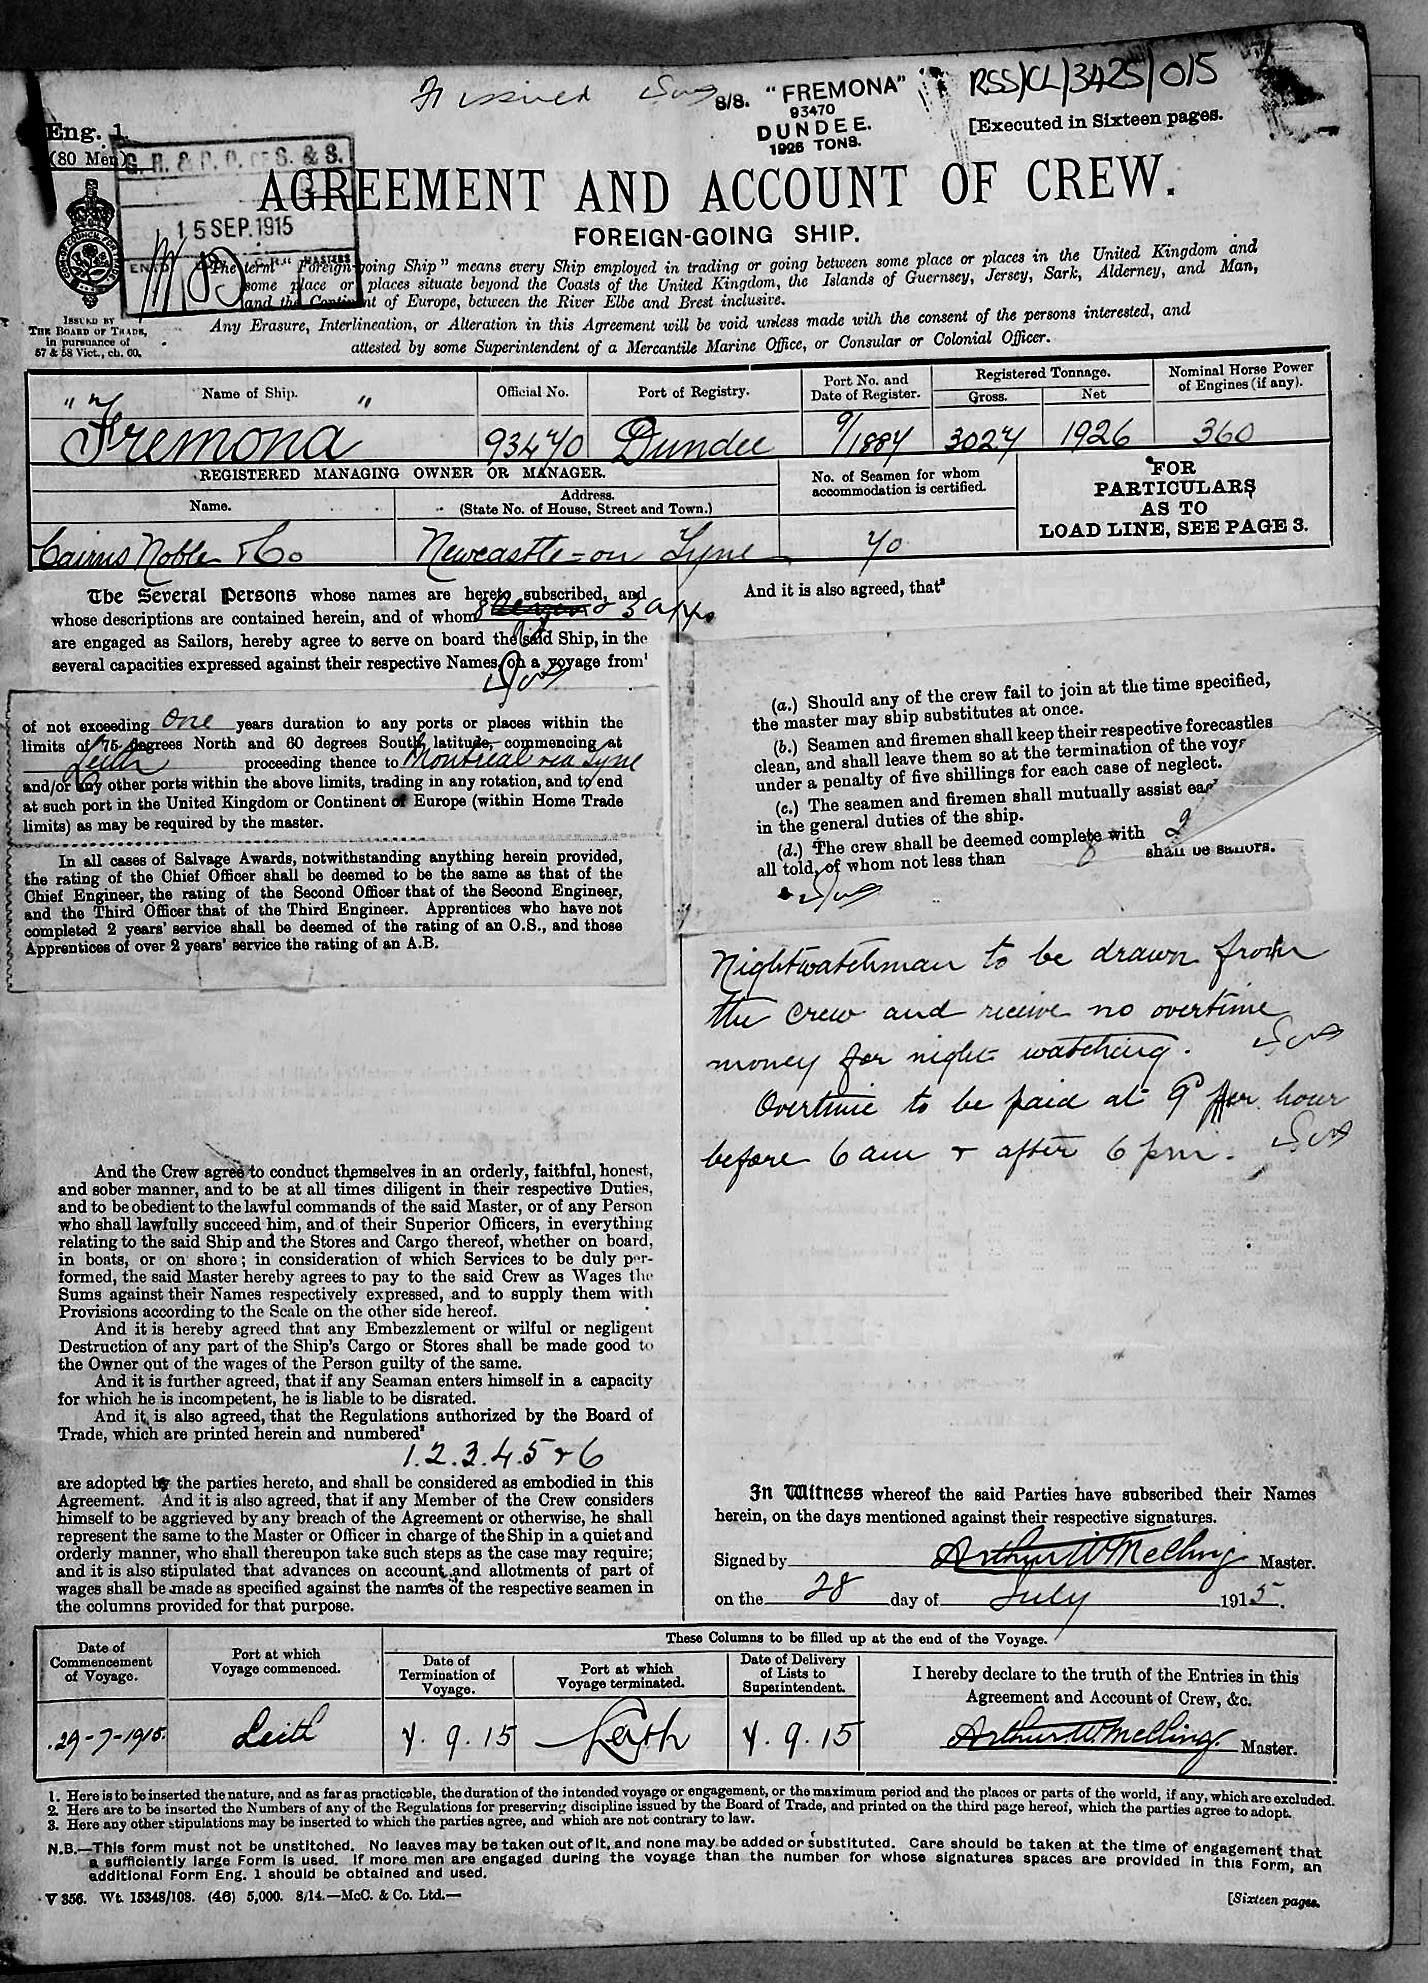 RSS/CL/3425/015
S/S. "FREMONA"
93470
DUNDEE.
1926 TONS.
[Executed in Sixteen pages.
Eng. 1.
(80 Men)
G. R. & S. & S.
15 SEP. 1915
MASTERS
AGREEMENT AND ACCOUNT OF CREW.
FOREIGN-GOING SHIP.
The term "Foreign-going Ship" means every Ship employed in trading or going between some place or places in the United Kingdom and
some place or places situate beyond the Coasts of the United Kingdom, the Islands of Guernsey, Jersey, Sark, Alderney, and Man,
and the Continent of Europe, between the River Elbe and Brest inclusive.
Any Erasure, Interlineation, or Alteration in this Agreement will be void unless made with the consent of the persons interested, and
attested by some Superintendent of a Mercantile Marine Office, or Consular or Colonial Officer.
ISSUED BY
THE BOARD OF TRADE,
in pursuance of
57 & 58 Vict., ch. 60.
Name of Ship. Official No. Port of Registry. Port No. and Date of Register. Registered Tonnage. Gross. Net Nominal Horse Power of Engines (if any).
"Fremona" 93470 Dundee 9/1887 3027 1926 360
REGISTERED MANAGING OWNER OR MANAGER.
Name. Address. (State No. of House, Street and Town.)
No. of Seamen for whom accommodation is certified.
Cairns Noble & Co Newcastle-on Tyne 40
FOR
PARTICULARS
AS TO
LOAD LINE, SEE PAGE 3.
The Several Persons whose names are hereto subscribed, and
whose descriptions are contained herein, and of whom 8 & 3 apps
are engaged as Sailors, hereby agree to serve on board the said Ship, in the
several capacities expressed against their respective Names, on a voyage from¹
of not exceeding One years duration to any ports or places within the
limits of 75 degrees North and 60 degrees South latitude, commencing at
Leith proceeding thence to Montreal via Tyne
and/or any other ports within the above limits, trading in any rotation, and to end
at such port in the United Kingdom or Continent of Europe (within Home Trade
limits) as may be required by the master.
In all cases of Salvage Awards, notwithstanding anything herein provided,
the rating of the Chief Officer shall be deemed to be the same as that of the
Chief Engineer, the rating of the Second Officer that of the Second Engineer,
and the Third Officer that of the Third Engineer. Apprentices who have not
completed 2 years' service shall be deemed of the rating of an O.S., and those
Apprentices of over 2 years' service the rating of an A.B.
And the Crew agree to conduct themselves in an orderly, faithful, honest,
and sober manner, and to be at all times diligent in their respective Duties,
and to be obedient to the lawful commands of the said Master, or of any Person
who shall lawfully succeed him, and of their Superior Officers, in everything
relating to the said Ship and the Stores and Cargo thereof, whether on board,
in boats, or on shore; in consideration of which Services to be duly per-
formed, the said Master hereby agrees to pay to the said Crew as Wages the
Sums against their Names respectively expressed, and to supply them with
Provisions according to the Scale on the other side hereof.
And it is hereby agreed that any Embezzlement or wilful or negligent
Destruction of any part of the Ship's Cargo or Stores shall be made good to
the Owner out of the wages of the Person guilty of the same.
And it is further agreed, that if any Seaman enters himself in a capacity
for which he is incompetent, he is liable to be disrated.
And it is also agreed, that the Regulations authorized by the Board of
Trade, which are printed herein and numbered²
1.2.3.4.5 & 6
are adopted by the parties hereto, and shall be considered as embodied in this
Agreement. And it is also agreed, that if any Member of the Crew considers
himself to be aggrieved by any breach of the Agreement or otherwise, he shall
represent the same to the Master or Officer in charge of the Ship in a quiet and
orderly manner, who shall thereupon take such steps as the case may require;
and it is also stipulated that advances on account and allotments of part of
wages shall be made as specified against the names of the respective seamen in
the columns provided for that purpose.
And it is also agreed, that³
(a.) Should any of the crew fail to join at the time specified,
the master may ship substitutes at once.
(b.) Seamen and firemen shall keep their respective forecastles
clean, and shall leave them so at the termination of the voy
under a penalty of five shillings for each case of neglect.
(c.) The seamen and firemen shall mutually assist eac
in the general duties of the ship.
(d.) The crew shall be deemed complete with
all told, of whom not less than 8 shall be sailors.
Nightwatchman to be drawn from
the crew and receive no overtime
money for night watching.
Overtime to be paid at 9d per hour
before 6 am & after 6 pm.
In Witness whereof the said Parties have subscribed their Names
herein, on the days mentioned against their respective signatures.
Signed by Arthur W Melling Master.
on the 28 day of July 1915.
Date of Commencement of Voyage. Port at which Voyage commenced. These Columns to be filled up at the end of the Voyage.
Date of Termination of Voyage. Port at which Voyage terminated. Date of Delivery of Lists to Superintendent.
I hereby declare to the truth of the Entries in this
Agreement and Account of Crew, &c.
29-7-1915. Leith 7.9.15 Leith 7.9.15 Arthur W. Melling Master.
1. Here is to be inserted the nature, and as far as practicable, the duration of the intended voyage or engagement, or the maximum period and the places or parts of the world, if any, which are excluded.
2. Here are to be inserted the Numbers of any of the Regulations for preserving discipline issued by the Board of Trade, and printed on the third page hereof, which the parties agree to adopt.
3. Here any other stipulations may be inserted to which the parties agree, and which are not contrary to law.
N.B.—This form must not be unstitched. No leaves may be taken out of it, and none may be added or substituted. Care should be taken at the time of engagement that
a sufficiently large Form is used. If more men are engaged during the voyage than the number for whose signatures spaces are provided in this Form, an
additional Form Eng. 1 should be obtained and used.
V 356. Wt. 15348/108. (46) 5,000. 8/14.—McC. & Co. Ltd.—
[Sixteen pages.